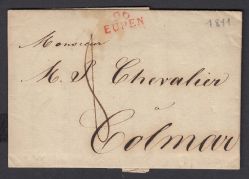 96
EUPEN
1811
Monsieur
M. J. Chevalier
à
Colmar